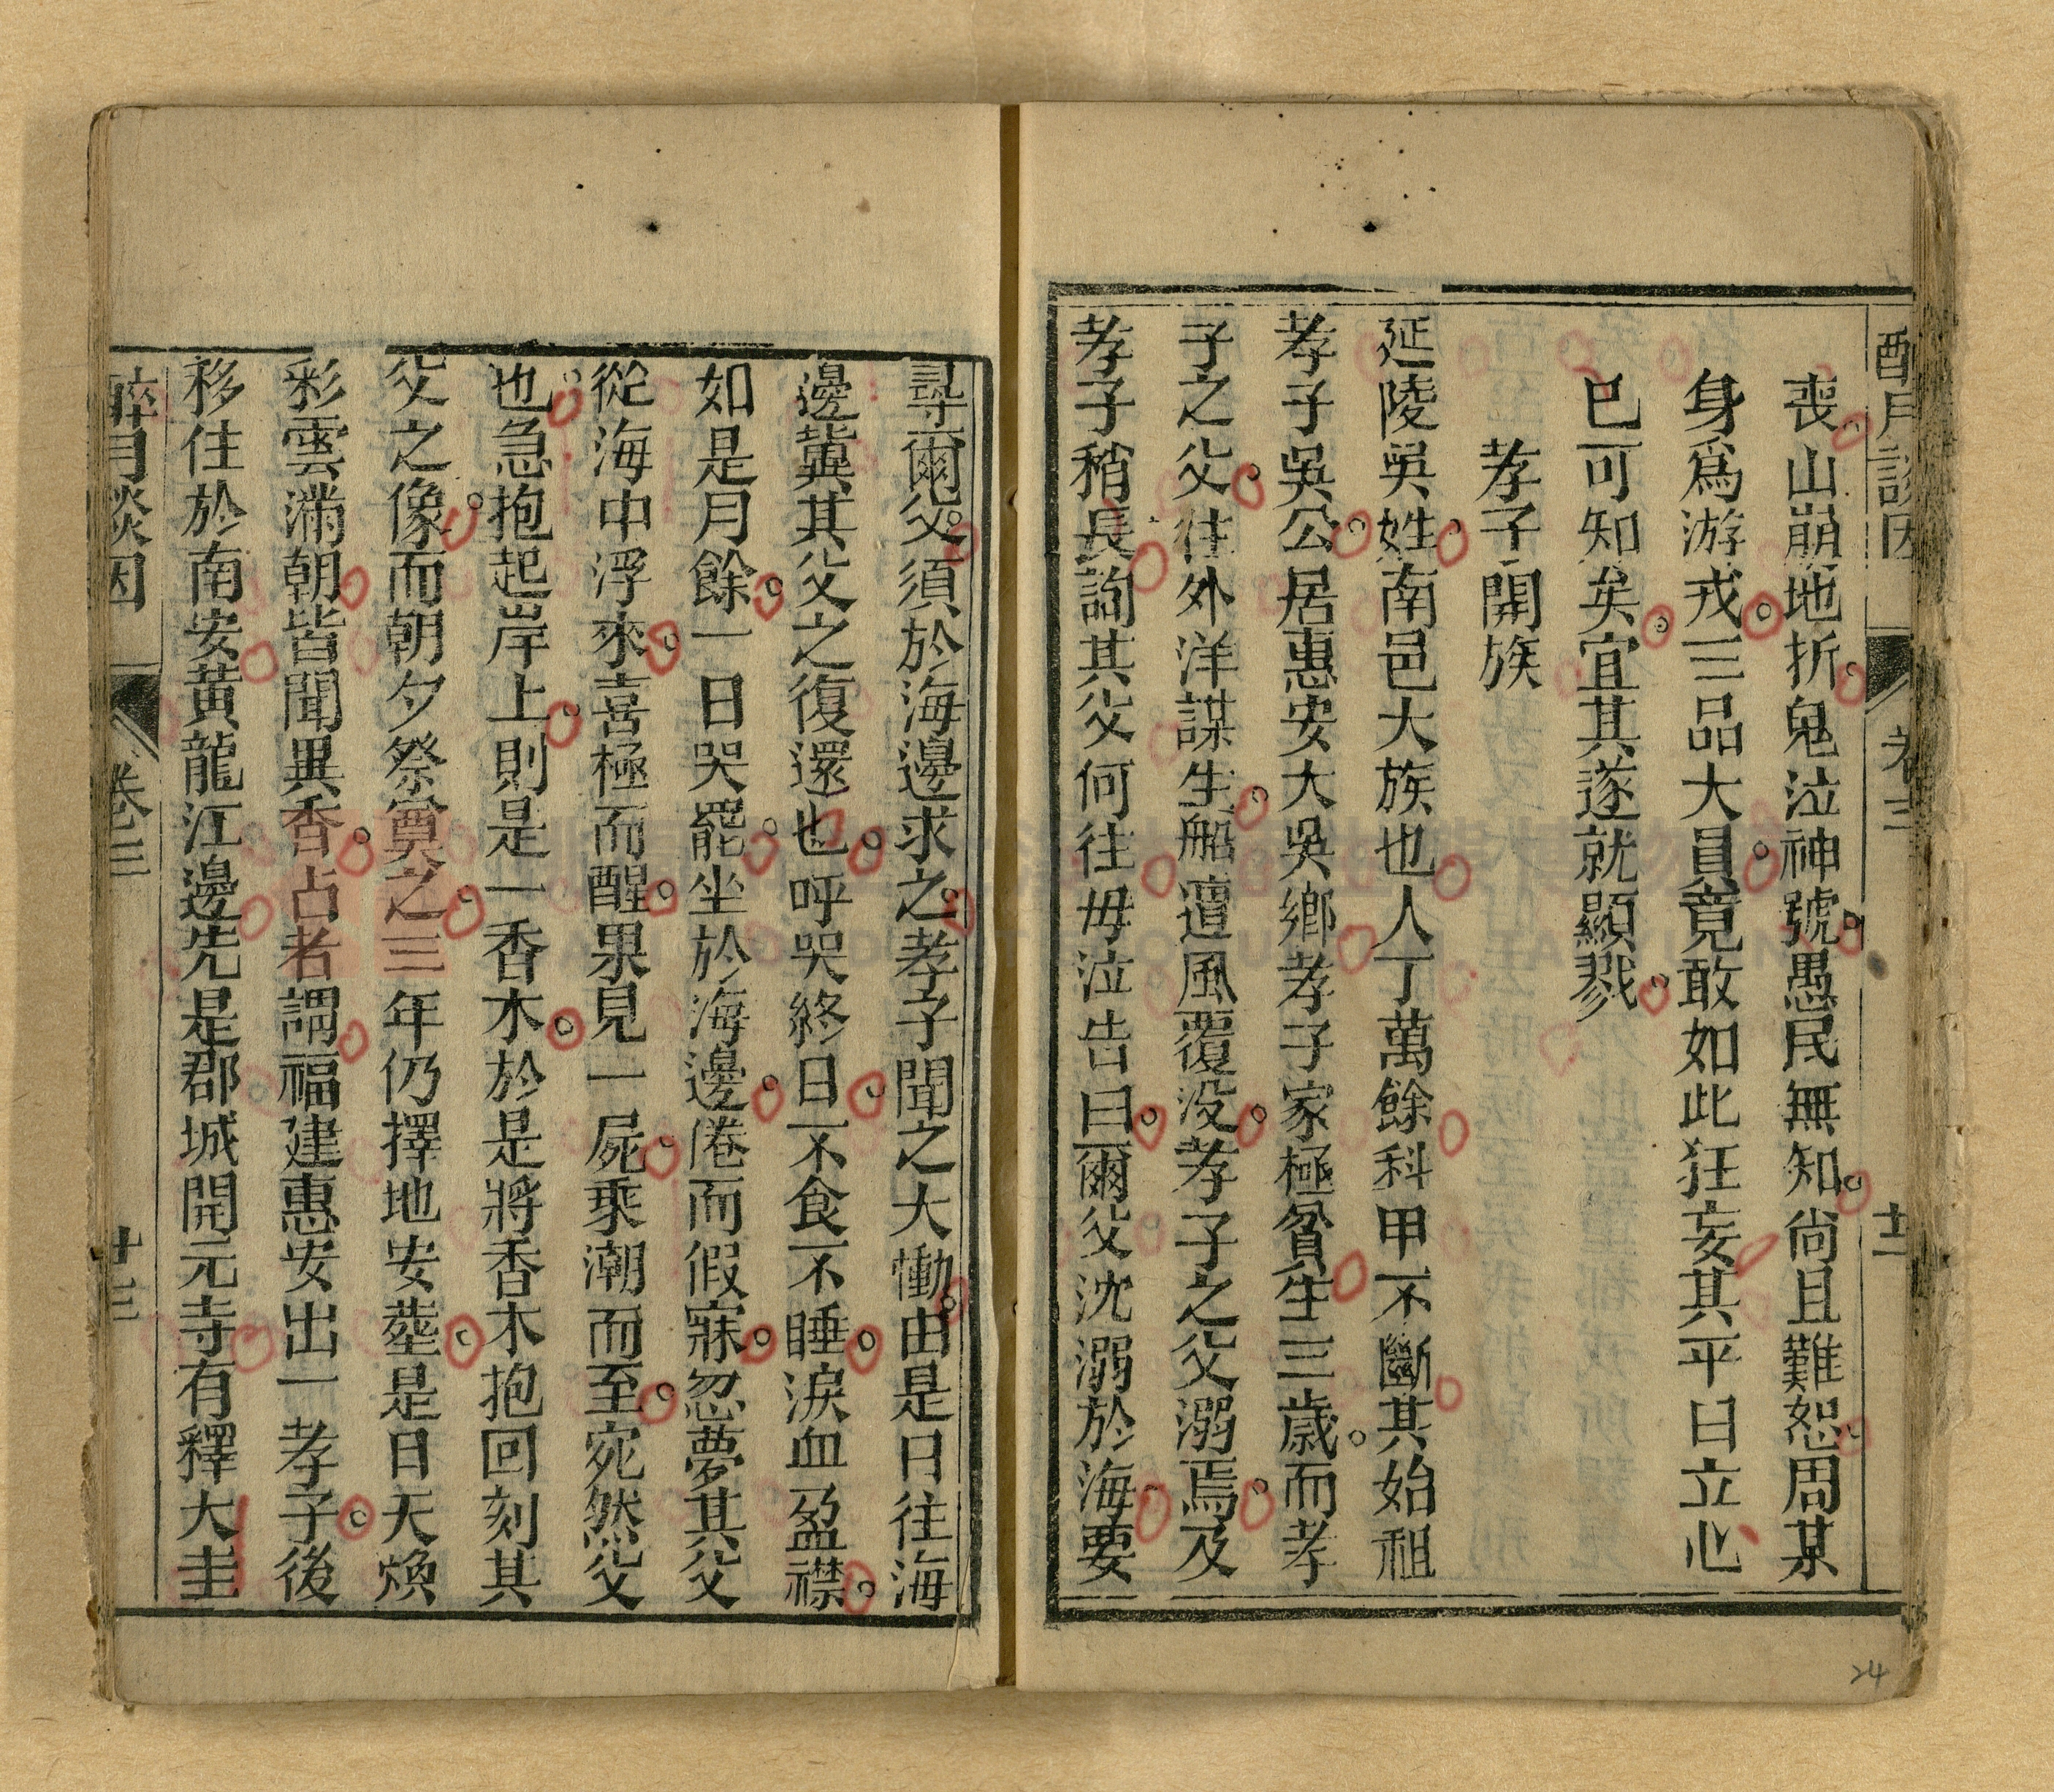 醉月談因 卷三 廿二
喪山崩地折鬼泣神號愚民無知尚且難恕周某
身爲游戎三品大員竟敢如此狂妄其平日立心
已可知矣宜其遂就顯戮
孝子開族
延陵吳姓南邑大族也人丁萬餘科甲不斷其始祖
孝子吳公居惠安大吳鄉孝子家極貧生三歲而孝
子之父往外洋謀生船遭風覆没孝子之父溺焉及
孝子稍長詢其父何往毋泣告曰爾父沈溺於海要
尋爾父須於海邊求之孝子聞之大慟由是日往海
邊冀其父之復還也呼哭終日不食不睡淚血盈襟
如是月餘一日哭罷坐於海邊倦而假寐忽夢其父
從海中浮來喜極而醒果見一屍乘潮而至宛然父
也急抱起岸上則是一香木於是將香木抱回刻其
父之像而朝夕祭奠之三年仍擇地安塟是日天煥
彩雲滿朝皆聞異香占者謂福建惠安出一孝子後
移住於南安黄龍江邊先是郡城開元寺有釋大圭
醉月談因 卷三 廿三
24